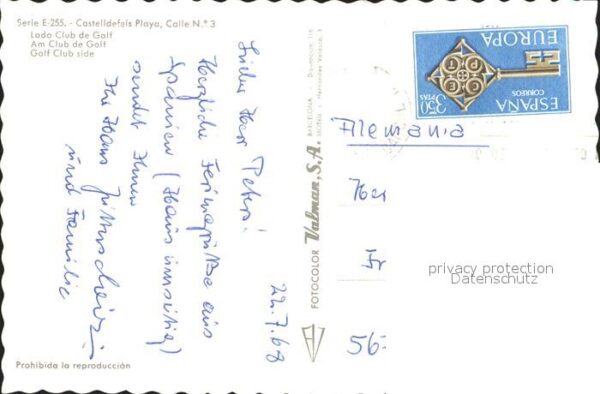 Serie E-255. - Castelldefels Playa, Calle N.º 3
Lado Club de Golf
Am Club de Golf
Golf Club side
22.7.68
Lieber Herr Peters!
Herzliche Feriengrüße aus
Spanien (Haus umseitig)
sendet Ihnen
Ihr Hans
und Familie
Prohibida la reproducción
FOTOCOLOR Valman, S.A. BARCELONA
EUROPA
CEPT
3,50
PTAS
CORREOS
ESPAÑA
Alemania
56
privacy protection
Datenschutz